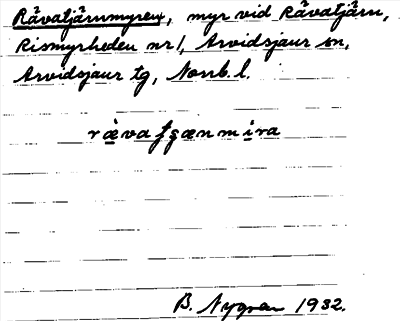 Rävatjärnmyren, myr vid Rävatjärn,
Rismyrheden nr 1, Arvidsjaur sn,
Arvidsjaur tg, Norrb. l.
B. Nygren 1932.